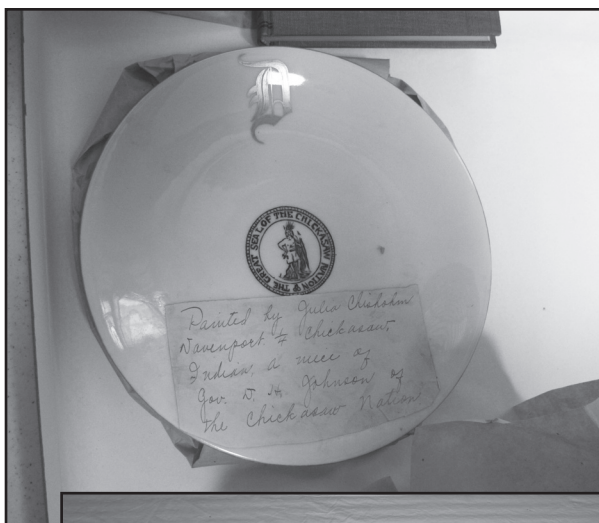 D
THE GREAT SEAL OF THE CHICKASAW NATION
Painted by Julia Chisholm
Davenport Chickasaw
Indian a niece of
Gov. D. H. Johnson of
the Chickasaw Nation